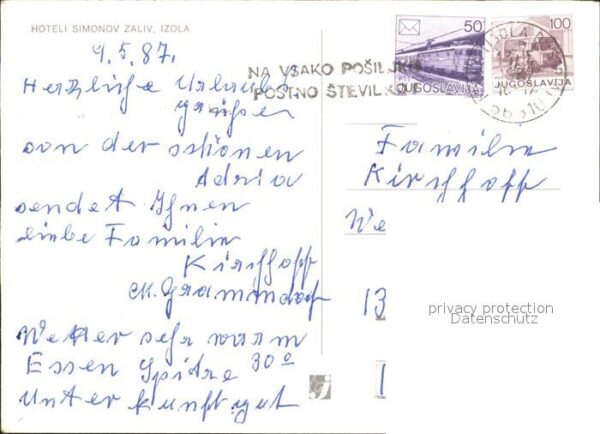 HOTELI SIMONOV ZALIV, IZOLA
9.5.87.
Herzliche Urlaubs
grüße
von der schönen
Adria
sendet Ihnen
liebe Familie
Kirchhoff
Wetter sehr warm
Essen Spitze 30°
Unterkunft gut
NA VSAKO POŠILJKO
POŠTNO ŠTEVILKO
50
JUGOSLAVIJA
100
JUGOSLAVIJA
IZOLA
66310
Familie
Kirchhoff
We
13
1
privacy protection
Datenschutz